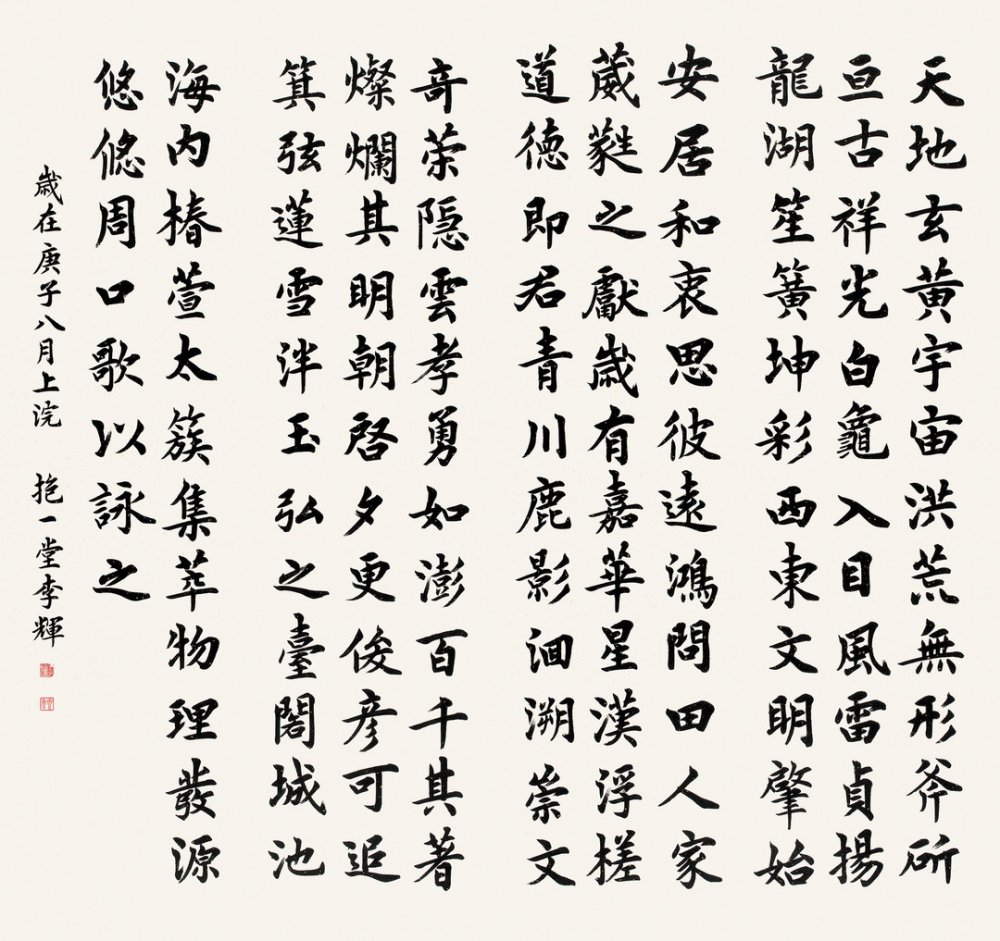 天地玄黃宇宙洪荒無形斧所
亘古祥光白龜入目風雷貞揚
龍湖笙簧坤彩西東文明肇始
安居和衷思彼遠鴻問田人家
葳蕤之獻歲有嘉華星漢浮槎
道德即君青川鹿影洄溯崇文
奇榮隱雲孝勇如澎百千其著
燦爛其明朝啓夕更俊彥可追
箕弦蓮雪泮玉弘之臺閣城池
海内椿萱太簇集萃物理發源
悠悠周口歌以詠之
歲在庚子八月上浣 抱一堂李輝